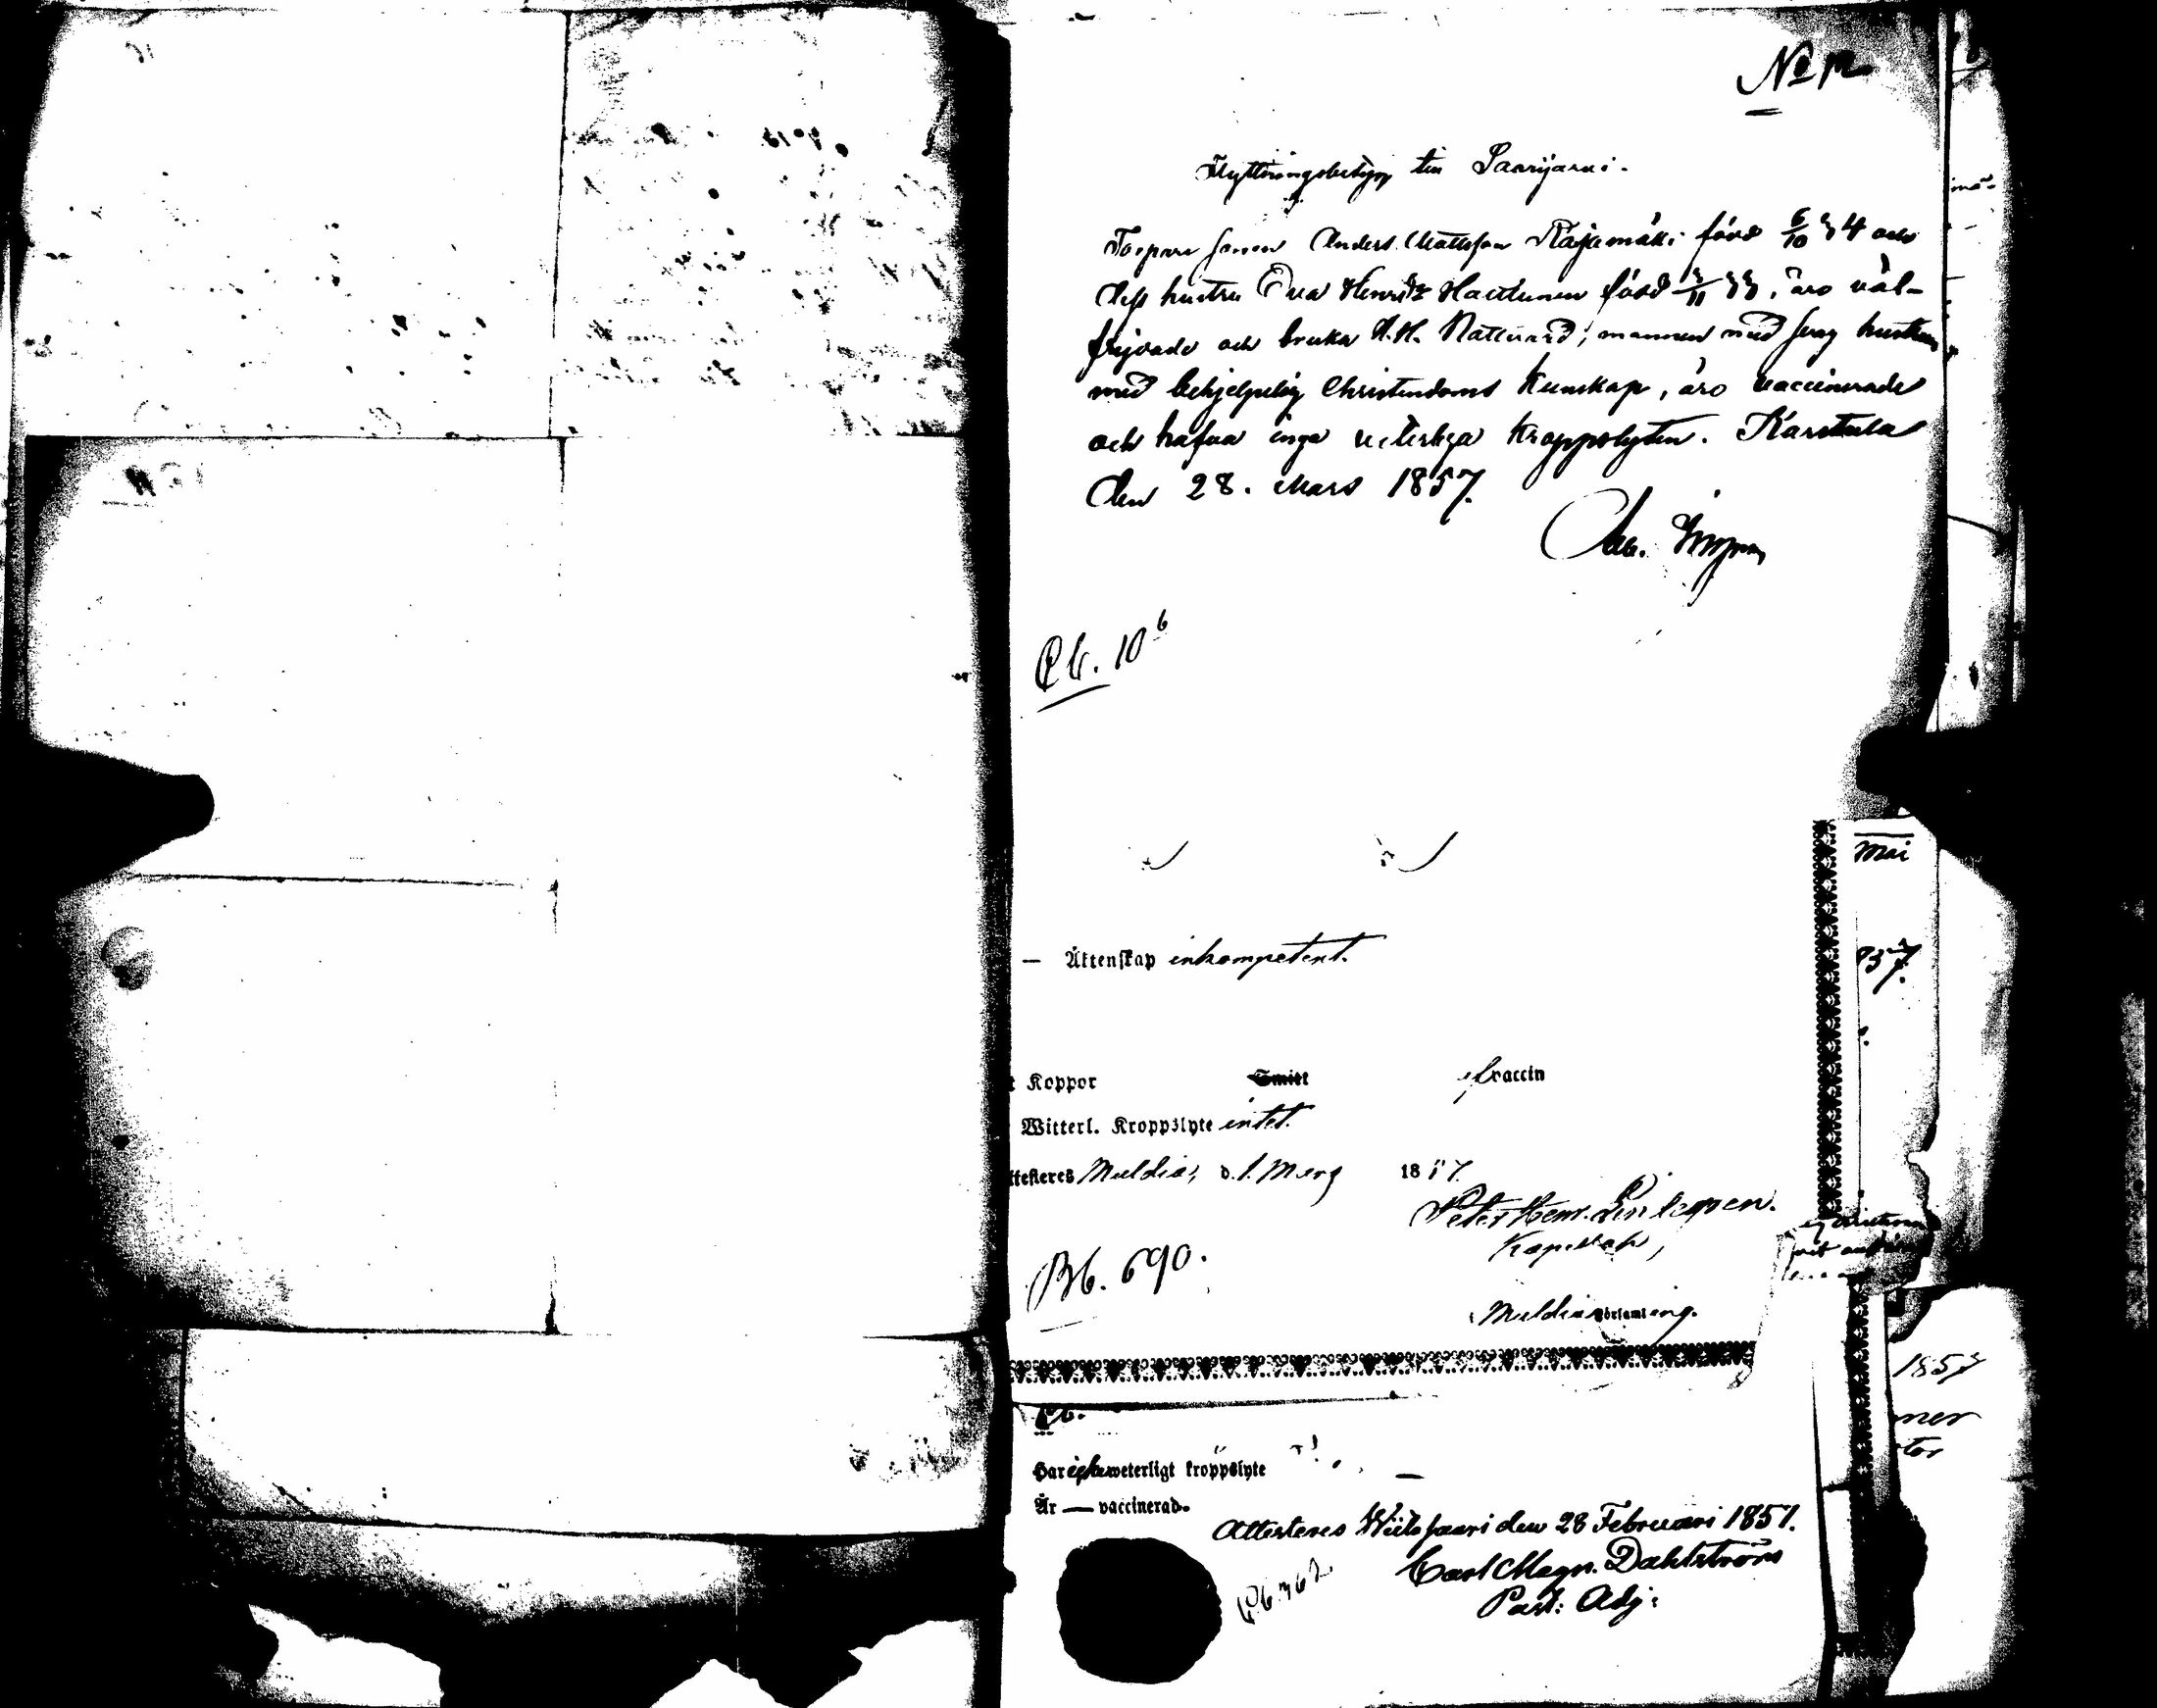 No 12
Flyttningsbetyg till Saarijarvi.
Torpare sonen Anders Mattsson Rajamäki född 6/10 34 och
dess hustru Eva Henrsdr Hartunen född /11 33, äro väl-
frejdade och bruka H.H. Nattvard; mannen med svag hustrun
med behjelpelig Christendoms kunskap, äro vaccinerade
och hafva inga veterliga kroppslyten. Karstula
den 28. Mars 1857.
Cb. 10
— Äktenskap inkompetent.
Mai
857.
t Koppor Smitt vaccin
Witterl. Kroppslyte intet.
ttesteres Muldia, d. 1. Mars 1857.
Peter Henr.
Kapellan,
Bb. 690.
Muldia Församling.
1857
Har icke weterligt kroppslyte —
Är — vaccinerad.
Attesteras Wiitasaari den 28 Februari 1857.
Carl Magn. Dahlström
Past: Adj: